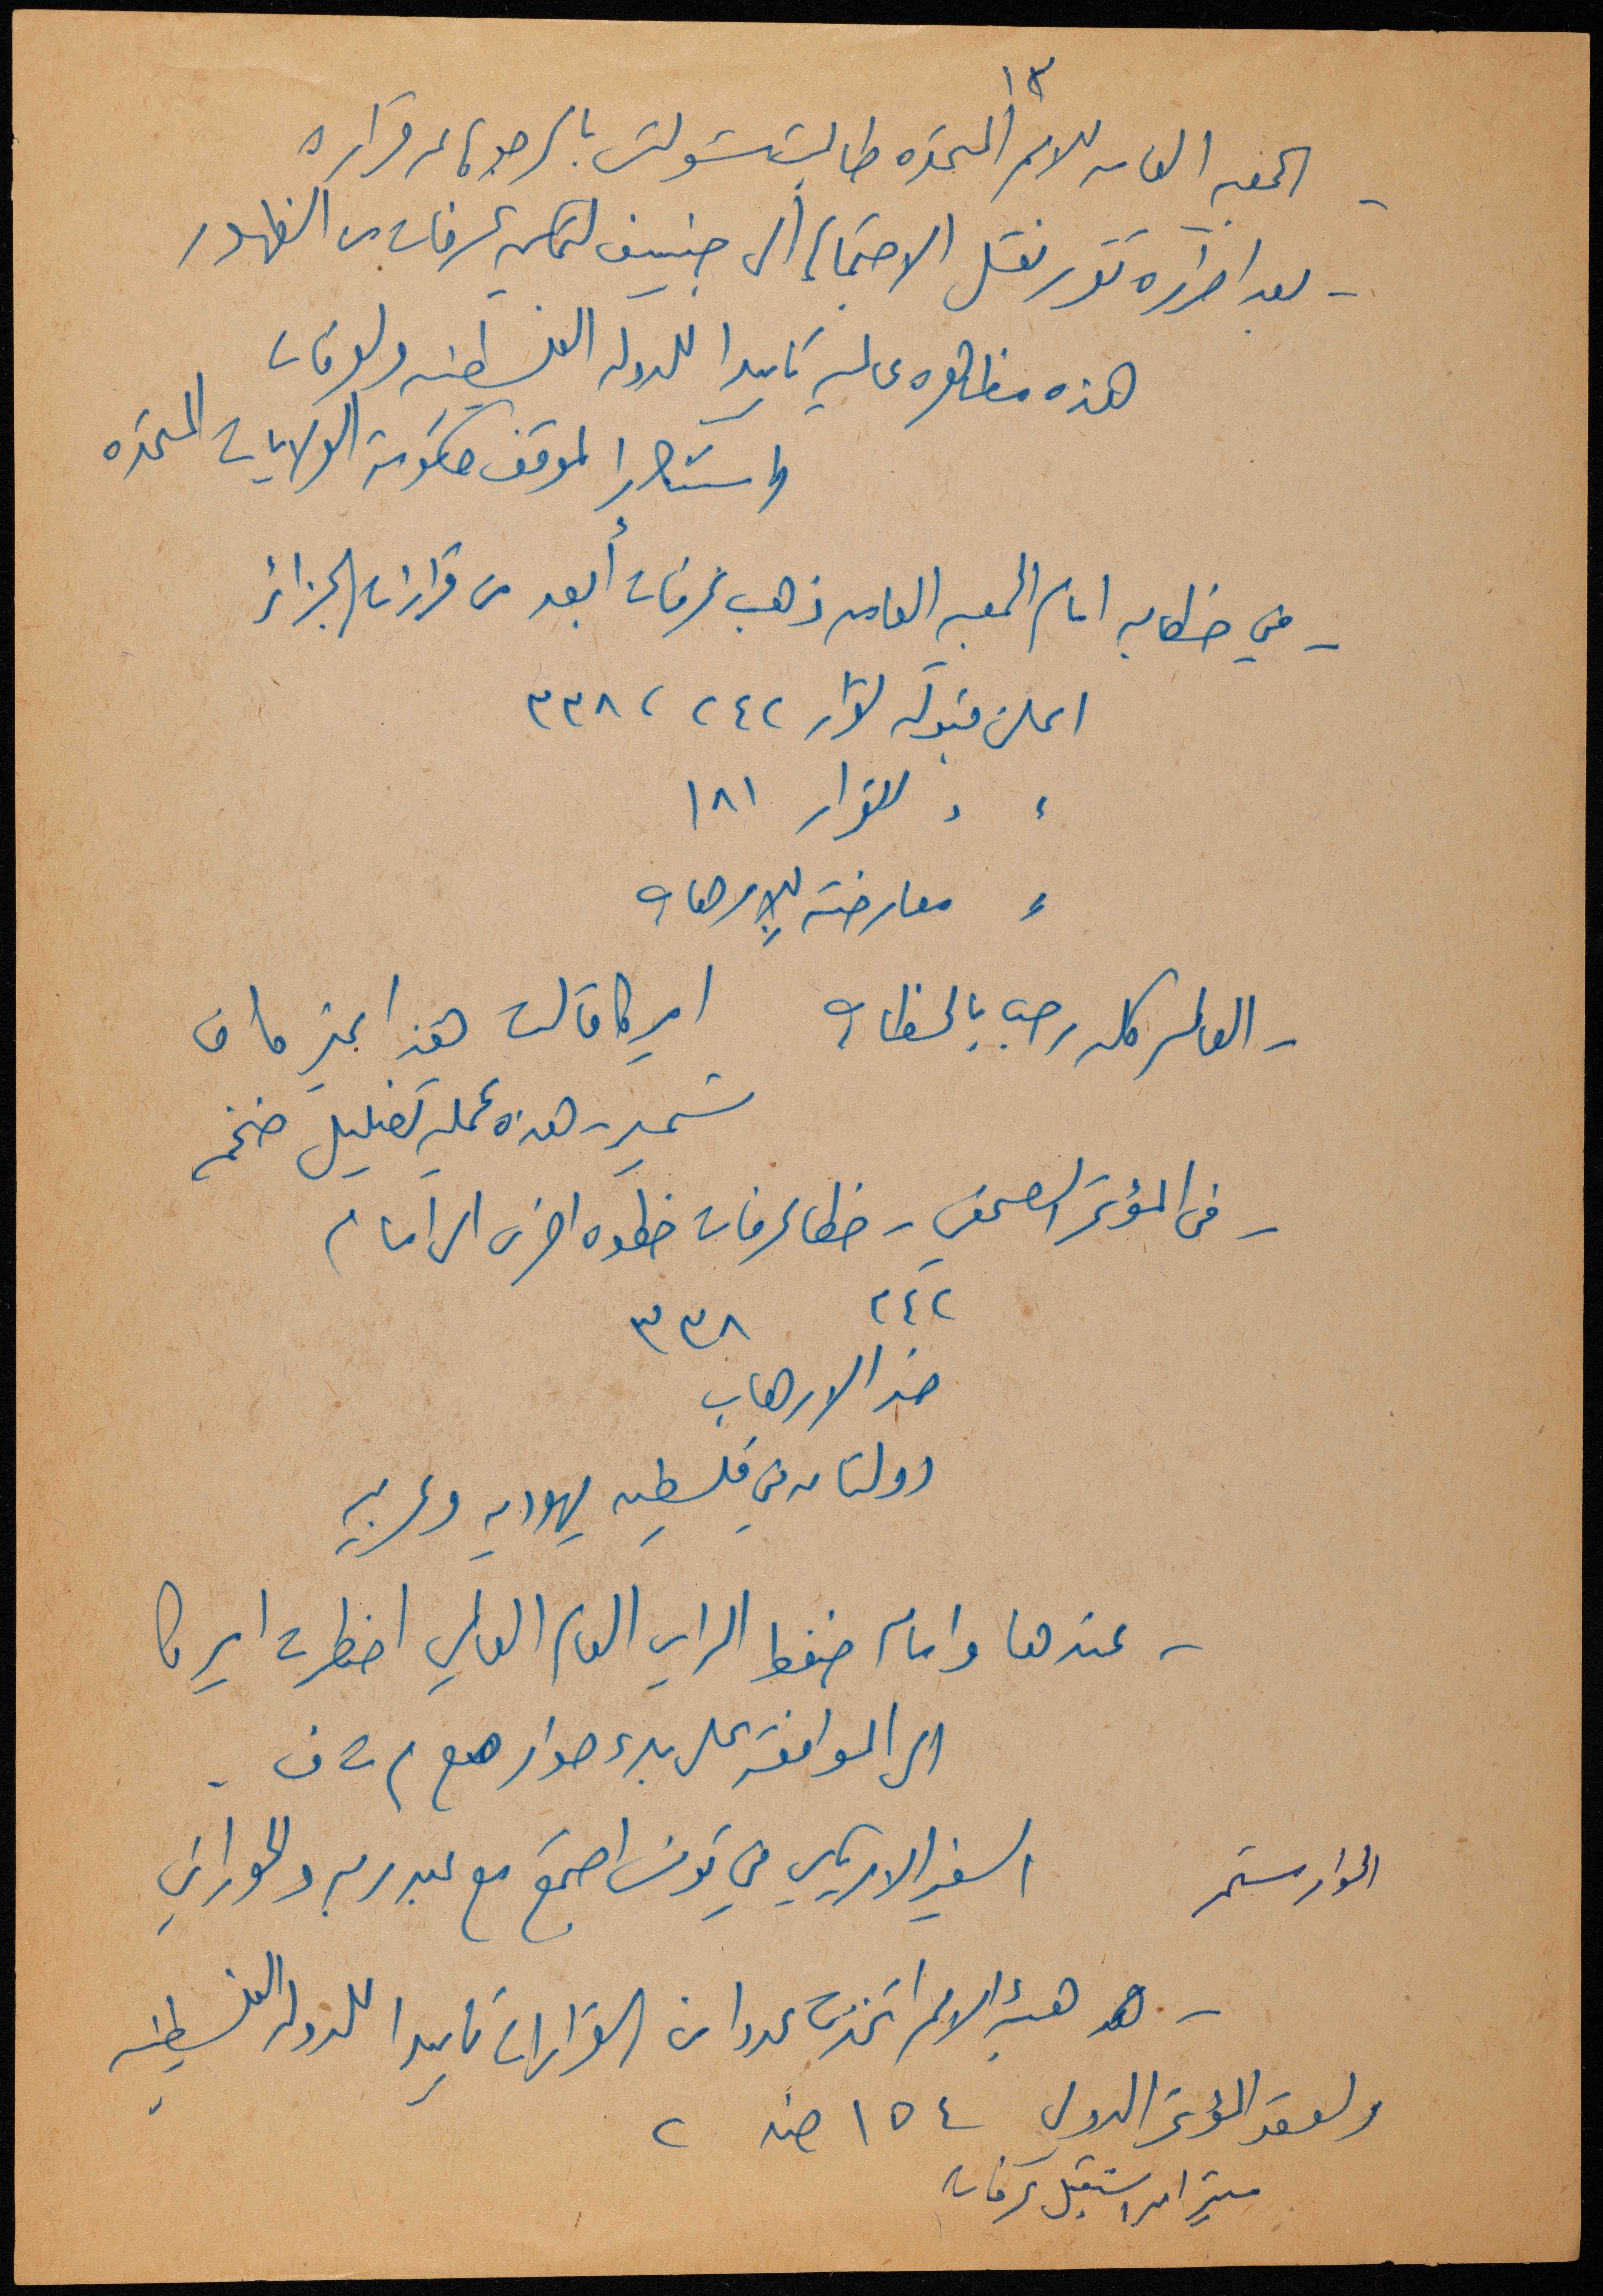 ١٣
- الجمعيه العامه للامم المتحده طالبت شولتس بالرجوع عن قراره
- بعد اضراره تقرر نقل الاجتماع الى جنيف لتمكين عرفات من الظهور
هذه مظاهره عالميه تاييدا للدوله الفلسطينيه ولعرفات
واستنكارا لموقف حكومة الولايات المتحده
- في خطابه امام الجمعيه العامه ذهب عرفات أبعد من قرارات الجزائر
اعلن قبوله لقرار ٢٤٢ ، ٣٣٨
، ، للقرار ١٨١
، معارضته للإرهاب
- العالم كله رحب بالخطاب اميركا قالت هذا غير كاف
شمير - هذه عملية تضليل ضخمه
- في المؤتمر الصحفي - خطا عرفات خطوه اخرى الى امام
٢٤٢ ٣٣٨
ضد الارهاب
دولتان في فلسطين يهوديه وعربيه
- عندها وامام ضغط الراي العام العالمي اضطرت اميركا
الى الموافقة على بدء حوار مع م ت ف .
الحوار مستمر السفير الاميركي في تونس اجتمع مع عبد ربه والحوراني
- هيئة الامم اتخذت عددا من القرارات تاييدا للدوله الفلسطينيه
ولعقد المؤتمر الدولي ١٥٤ ضد ٢
ميتران استقبل عرفات